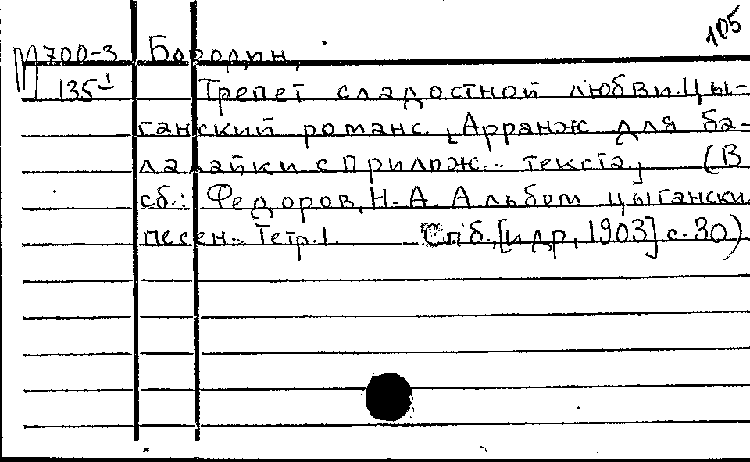 105
М 700-3 Бородин,
135-1 Трепет сладостной любви. Цы-
ганский романс. [Арранж для ба-
лалайки с прилож. текста] (В
сб.: Федоров, Н. А. Альбом цыгански
песен. Тетр. 1. Спб, [и др, 1903] с. 30)